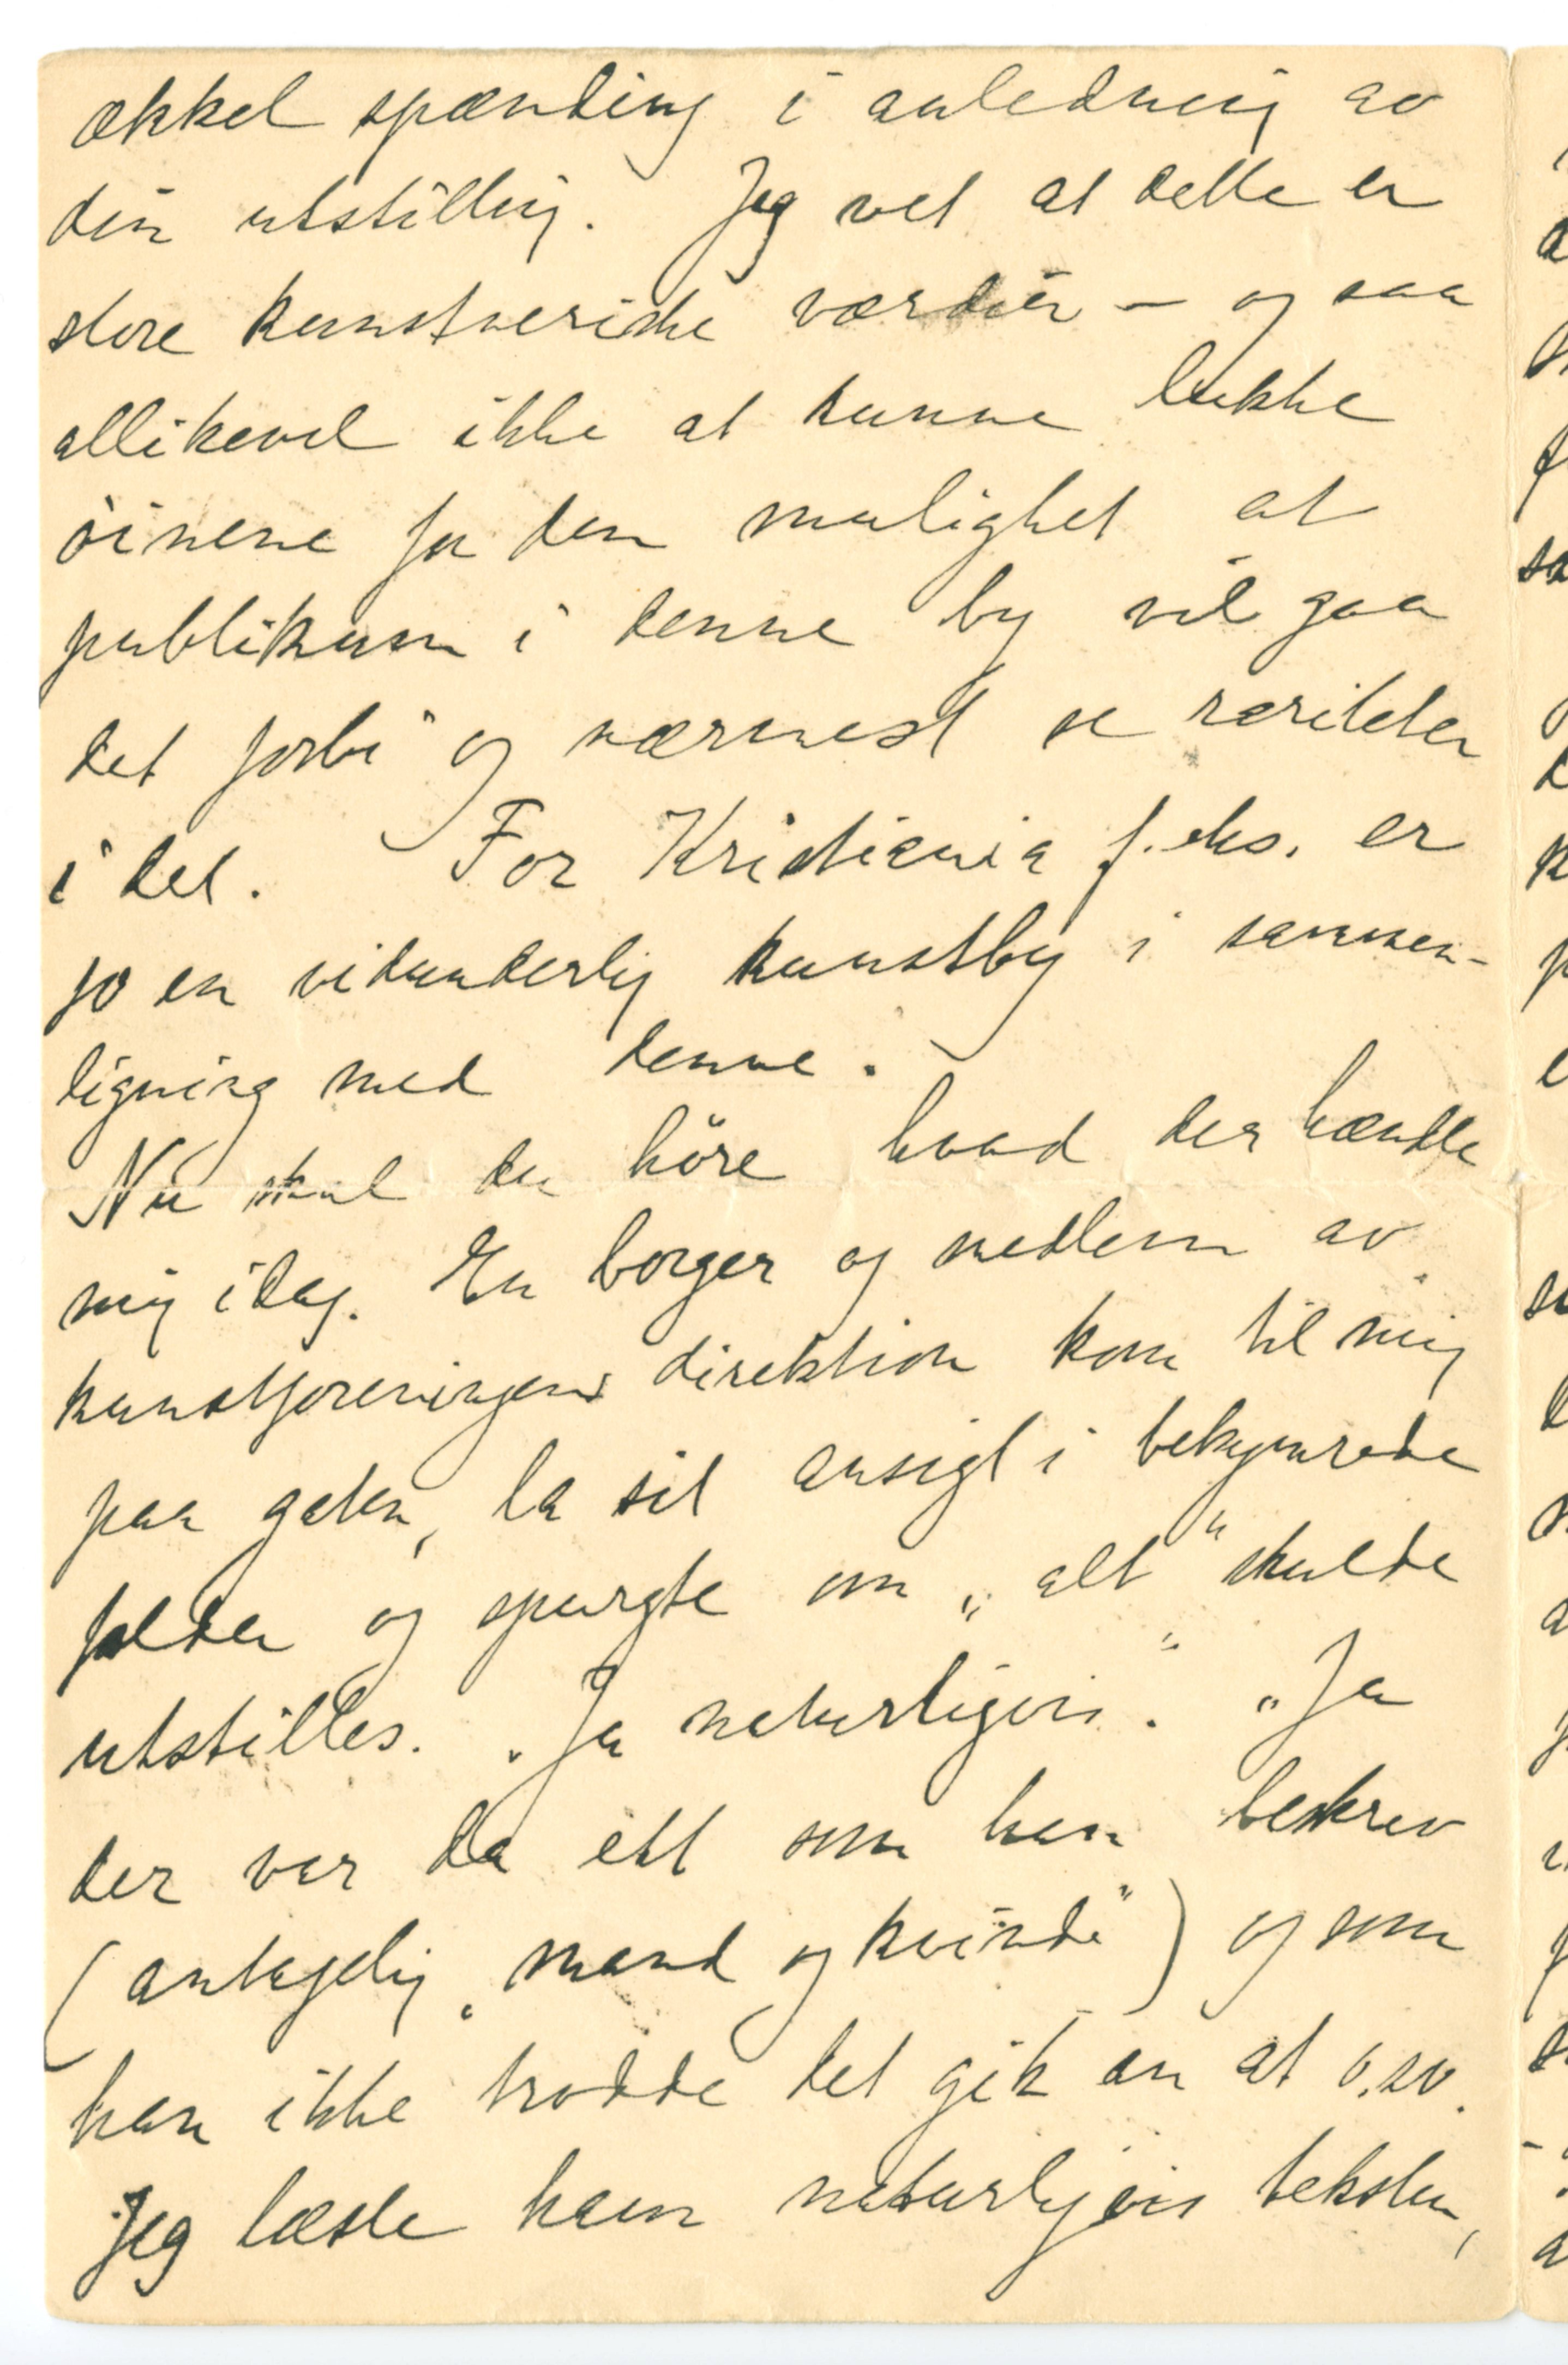 ækkel spænding i anledning av
din utstilling. Jeg vet at dette er
store kunstneriske værdier – og saa
allikevel ikke at kunne lukke
öinene for den mulighet at
publikum i denne by vil gaa
det forbi og nærmest se rariteter
i det. For Kristiania f. eks. er
jo en vidunderlig kunstby i sammen-
ligning med denne.
Nu skal du höre hvad der hændte
mig idag. En borger og medlem av
kunstforeningens direktion kom til mig
paa gaten, la sit ansigt i bekymrede
folder og spurgte om „alt" skulde
utstilles. „Ja naturligvis". „Ja
der var da ett som han beskrev
(antagelig „mand og kvinde") og som
han ikke trodde det gik an at o.sv.
Jeg læste ham naturligvis teksten,